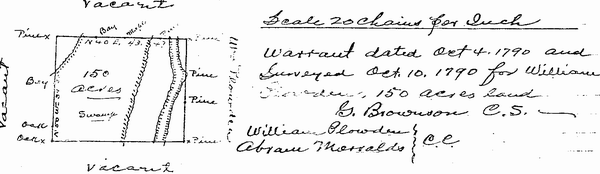 Vacant
Pine x
Bay
Maple
Pine
N 40 E.
Bay
150
acres
Swamp
Pine
Pine
Pine
Vacant
Oak
Oak x
Vacant
Scale 20 chains per Inch
Warrant dated Oct 4. 1790 and
Surveyed Oct. 10. 1790 for William
150 acres land
G. Brownson C.S.
William Plowden
Abram
C.C.